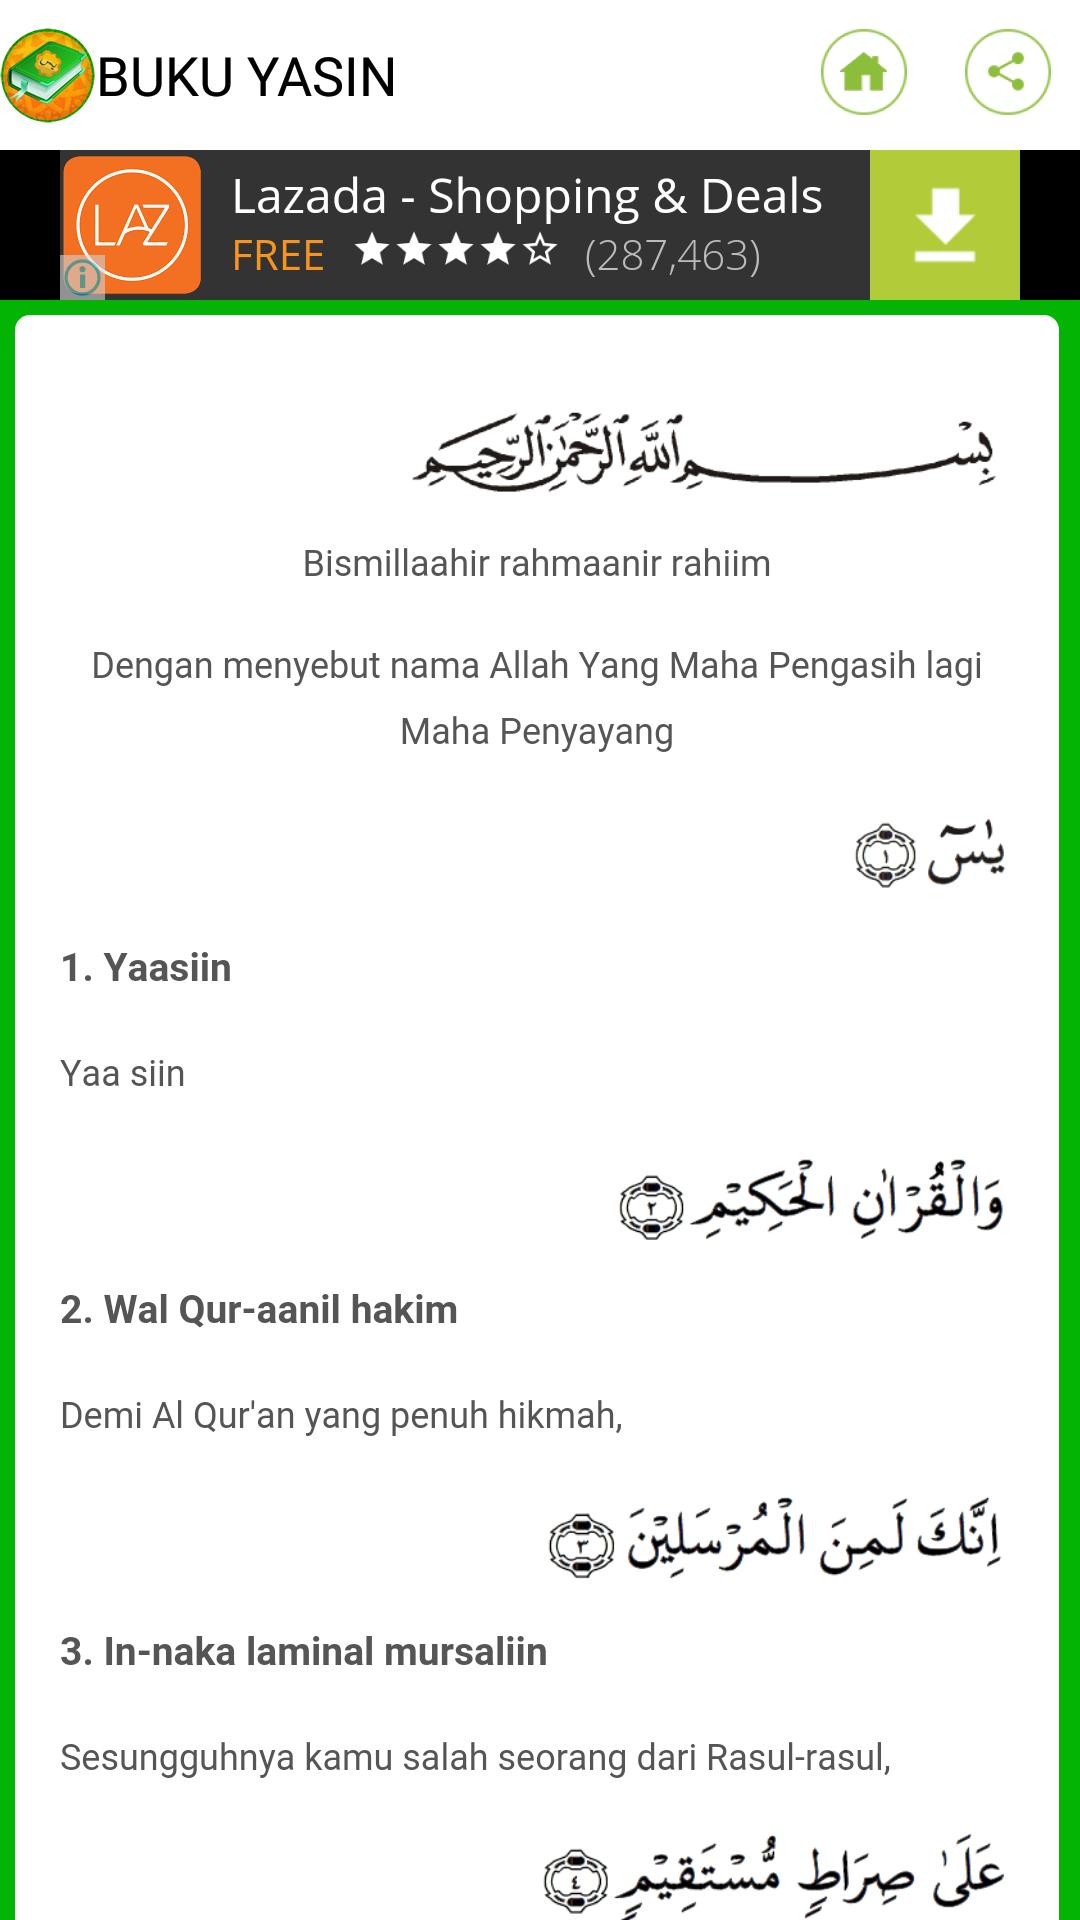 BUKU YASIN
LAZ
Lazada - Shopping & Deals
FREE (287,463)
بِسْمِ اللَّهِ الرَّحْمَٰنِ الرَّحِيمِ
Bismillaahir rahmaanir rahiim
Dengan menyebut nama Allah Yang Maha Pengasih lagi
Maha Penyayang
يٰسٓ ١
1. Yaasiin
Yaa siin
وَالْقُرْاٰنِ الْحَكِيْمِ ٢
2. Wal Qur-aanil hakim
Demi Al Qur'an yang penuh hikmah,
اِنَّكَ لَمِنَ الْمُرْسَلِيْنَ ٣
3. In-naka laminal mursaliin
Sesungguhnya kamu salah seorang dari Rasul-rasul,
عَلَىٰ صِرَاطٍ مُّسْتَقِيْمٍ ٤